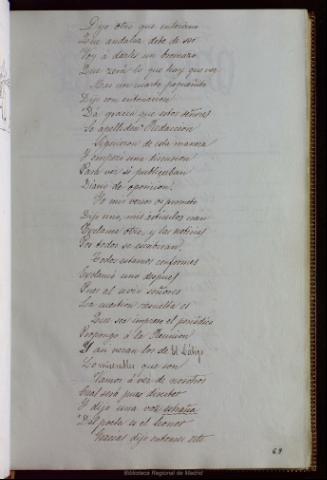 Dijo otro que entonces
Que andaluz debe de ser
Voy á darles un bromazo
Que será lo que hay que ver
Mas un cuarto
Dijo con entonacion
Dá gracia que estos señores
Se apelliden Redaccion
Siguieron de esta manera
Y empezó una discusion
Para ver si publicaban
Diario de oposicion.
Yo mis versos os prometo
Dijo uno, mis articulos
Esclama otro, y las noticias
Por todos se escribiran?
Todos estamos conformes
Esclamó uno despues
Pues al avio señores
La cuestion resuelta es
Que sea impreso el periodico
Propongo á la Reunion
Y asi veran los de El Látigo
Lo miserables que son
Vamos á ver de nosotros
Cual será pues director
Y dijo una voz
Del poeta es el honor
Gracias dijo entonces este
69
Biblioteca Regional de Madrid